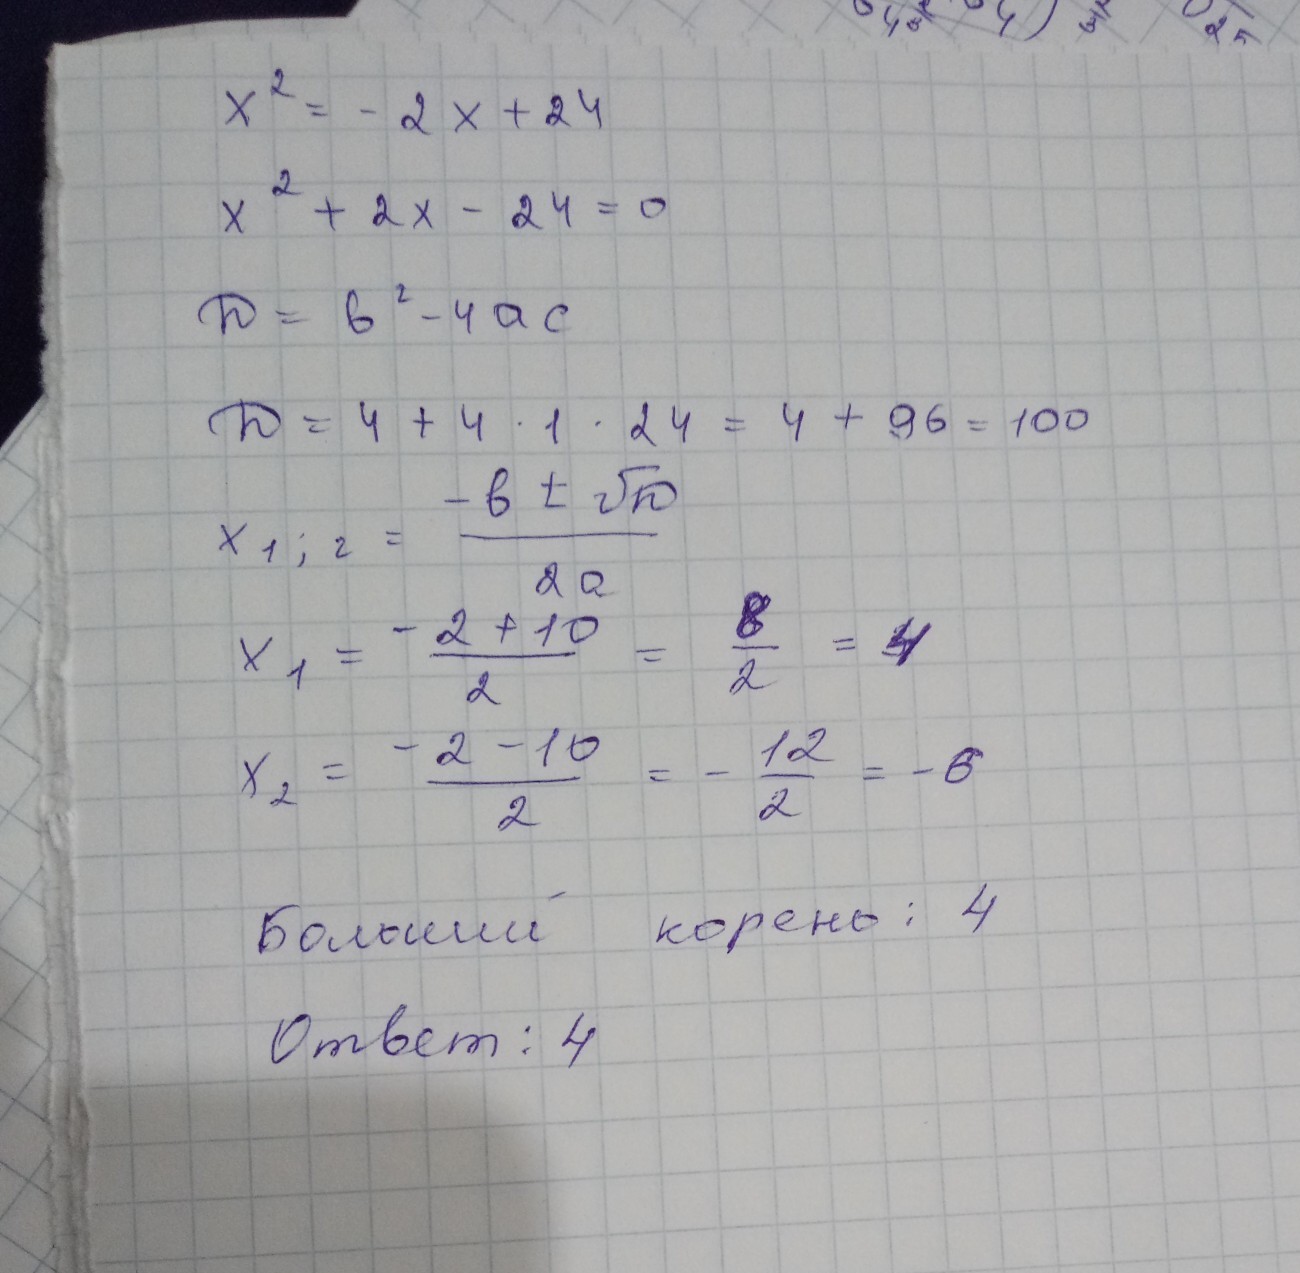 x² = - 2x + 24
x² + 2x - 24 = 0
D = b² - 4ac
D = 4 + 4 · 1 · 24 = 4 + 96 = 100
x₁;₂ = (-b ± √D) / 2a
x₁ = (-2 + 10) / 2 = 8/2 = 4
x₂ = (-2 - 10) / 2 = - 12/2 = - 6
Больший корень: 4
Ответ: 4